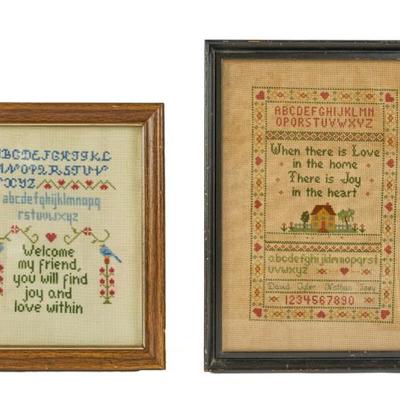 ABCDEFGHIJKL
MNOPQRSTU
VWXYZ
abcdefghijklmnopq
rstuvwxyz
Welcome
my friend,
you will find
joy and
love within
ABCDEFGHIJKLMN
OPQRSTUVWXYZ
When there is Love
in the home
There is Joy
in the heart
abcdefghijklmnopqrst
uvwxyz
David Tyler Nathan
1234567890